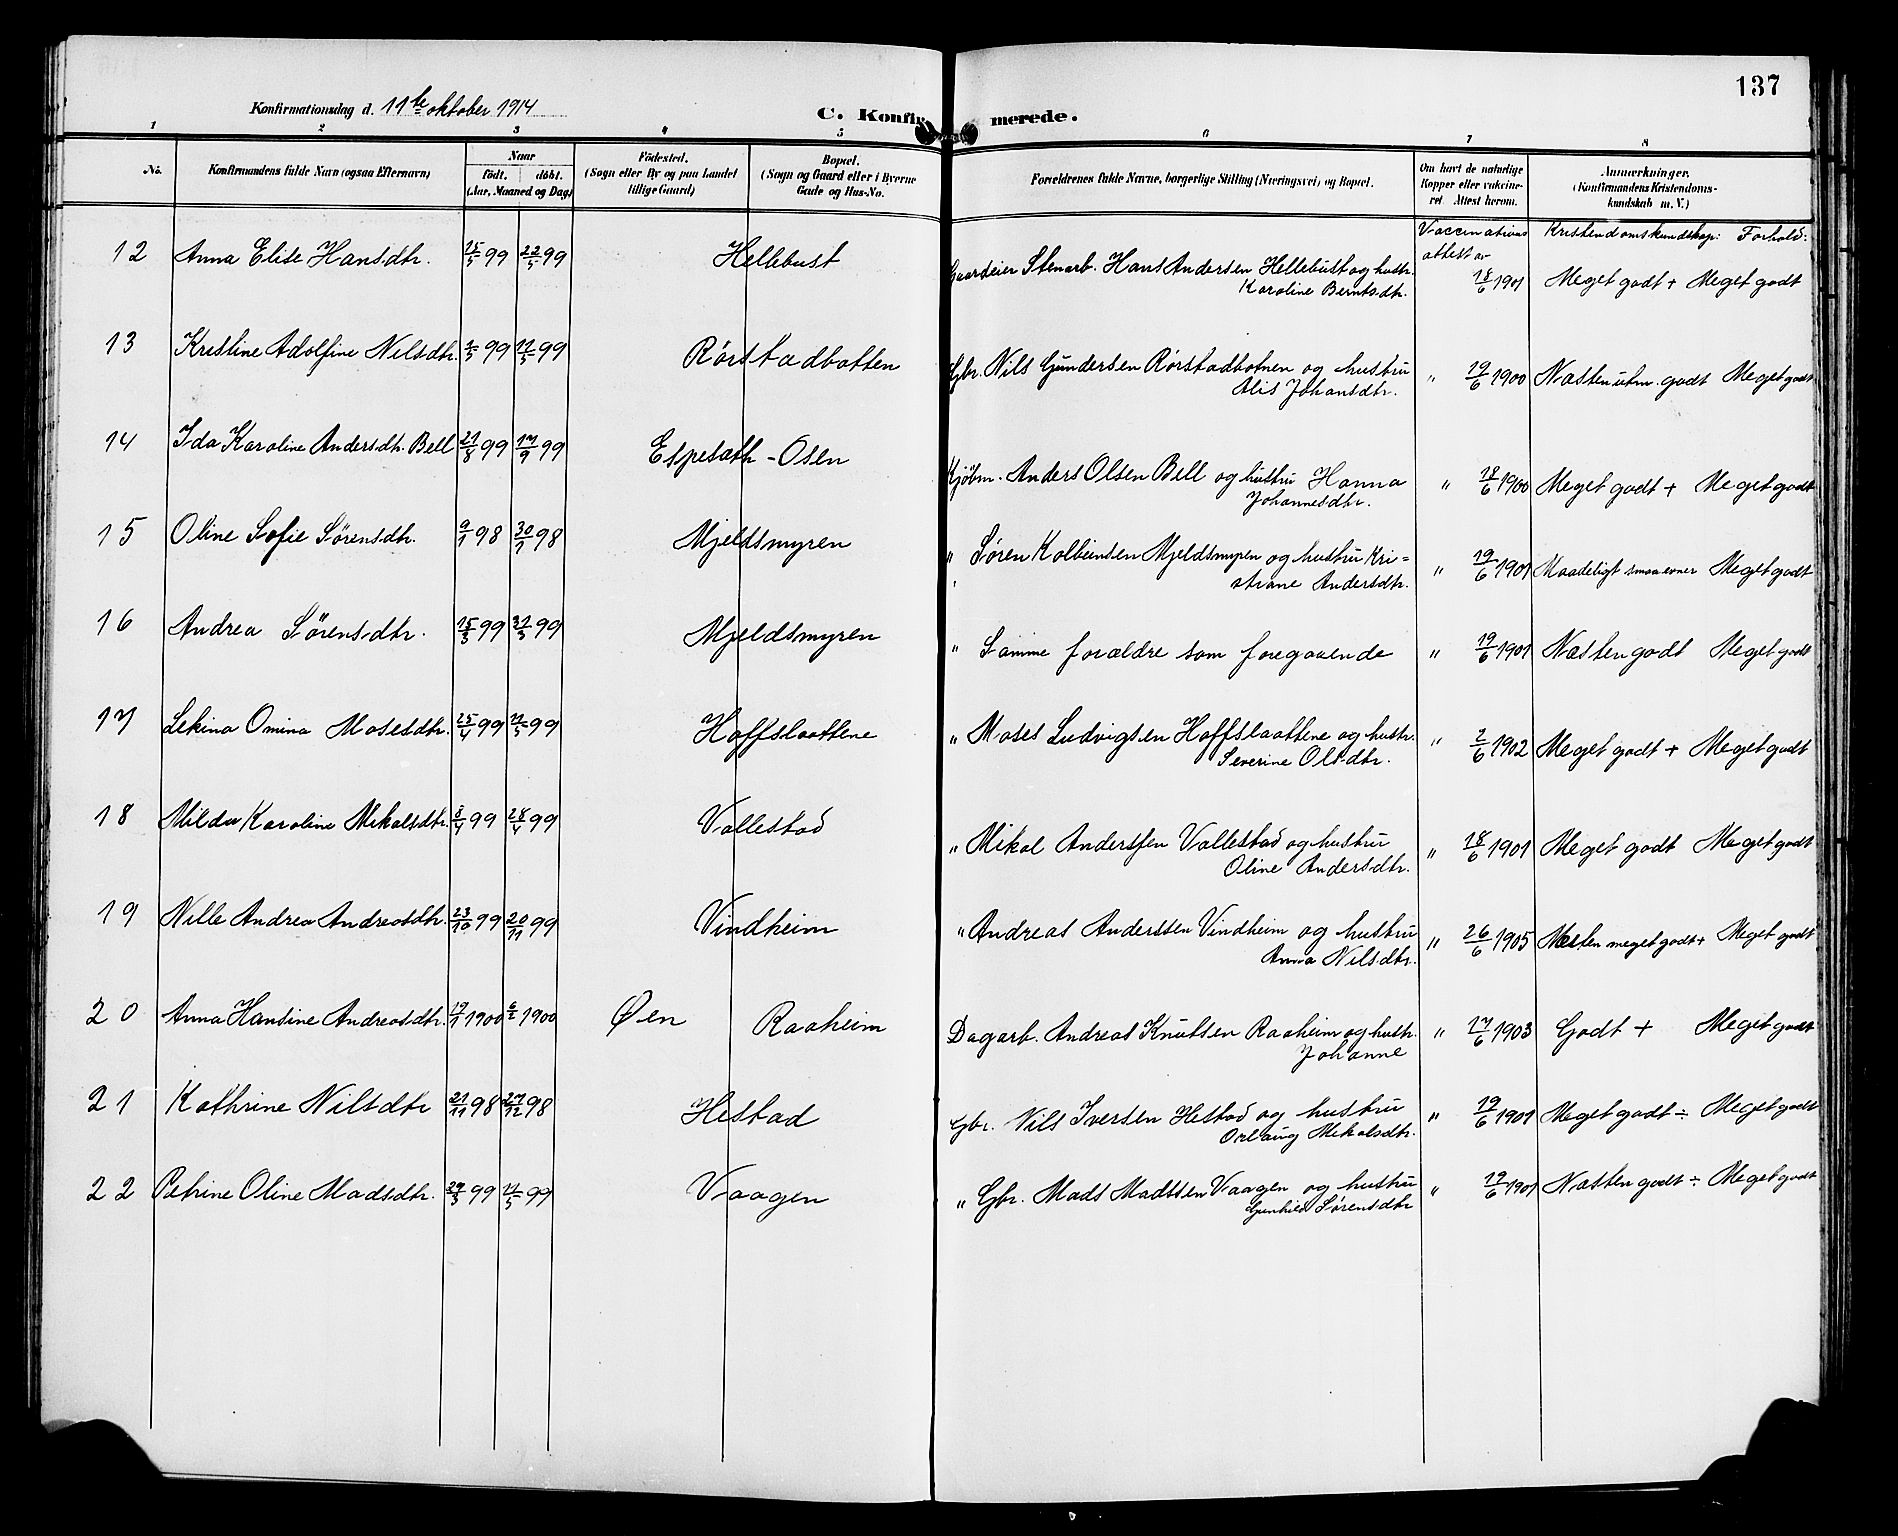 137
Konfirmationsdag d. 11te oktober 1914
C. Konfirmerede.
1 2 3 4 5 6 7 8
No. Konfirmandens fulde Navn (ogsaa Efternavn) Naar født. døbt. (Aar, Maaned og Dag) Fødested. (Sogn eller By og paa Landet tillige Gaard) Bopæl. (Sogn og Gaard eller i Byerne Gade og Hus-No. Forældrenes fulde Navne, borgerlige Stilling (Næringsvei) og Bopæl. Om havt de naturlige Kopper eller vakcineret. Attest herom. Anmærkninger. (Konfirmandens Kristendomskundskab m. V.)
Vaccinations attest av Kristendomskundskap: Forhold:
12 Anna Elise Hansdtr. 15/5 99 22/5 99 Hellebust Gaardeier Stenarb. Hans Andersen Hellebust og hustr. 18/6 1901 Meget godt + Meget godt
Karoline Berntsdtr.
13 Kristine Adolfine Nilsdtr. 99 99 Rørstadbotten Gbr. Nils Gundersen Rørstadbotnen og hustru " 19/6 1900 Næsten utm. godt Meget godt
Alis Johansdtr.
14 Ida Karoline Andersdtr. Bell 21/8 99 17/9 99 Espesæth - Osen Kjøbm. Anders Olsen Bell og hustru Hanna " 18/6 1900 Meget godt + Meget godt
Johannesdtr.
15 Oline Sofie Sørensdtr. 9/1 98 30/1 98 Mjeldsmyren " Søren Kolbeinsen Mjeldsmyren og hustru Kri- " 19/6 1901 Maadeligt smaa evner Meget godt
" stiane Andersdtr.
16 Andrea Sørensdtr. 15/3 99 31/3 99 Mjeldsmyren " Samme forældre som foregaaende " 19/6 1901 Næsten godt Meget godt
17 Lekina Omina Mosesdtr. 25/4 99 99 Hoffslaattene " Moses Ludvigsen Hoffslaattene og hustr. " 2/6 1902 Meget godt + Meget godt
Severine Olsdtr.
18 Milda Karoline Mikalsdtr. 8/4 99 28/4 99 Vallestad " Mikal Anderssen Vallestad og hustru " 18/6 1901 Meget godt Meget godt
Oline Andersdtr.
19 Nille Andrea Andreasdtr. 23/10 99 20/11 99 Vindheim " Andreas Anderssen Vindheim og hustru " 26/6 1905 Næsten meget godt + Meget godt
Anna Nilsdtr.
20 Anna Hansine Andreasdtr. 19/1 1900 6/2 1900 Øen Raaheim Dagarb. Andreas Knutsen Raaheim og hustr. " 17/6 1903 Godt + Meget godt
Johanne
21 Kathrine Nilsdtr 21/11 98 27/12 98 Hestad Gbr. Nils Iversen Hestad og hustru " 19/6 1901 Meget godt ÷ Meget godt
Orlaug Mikalsdtr.
22 Petrine Oline Madsdtr. 29/3 99 99 Vaagen " Gbr. Mads Madssen Vaagen og hustru " 19/6 1901 Næsten godt ÷ Meget godt
Gunhild Sørensdtr